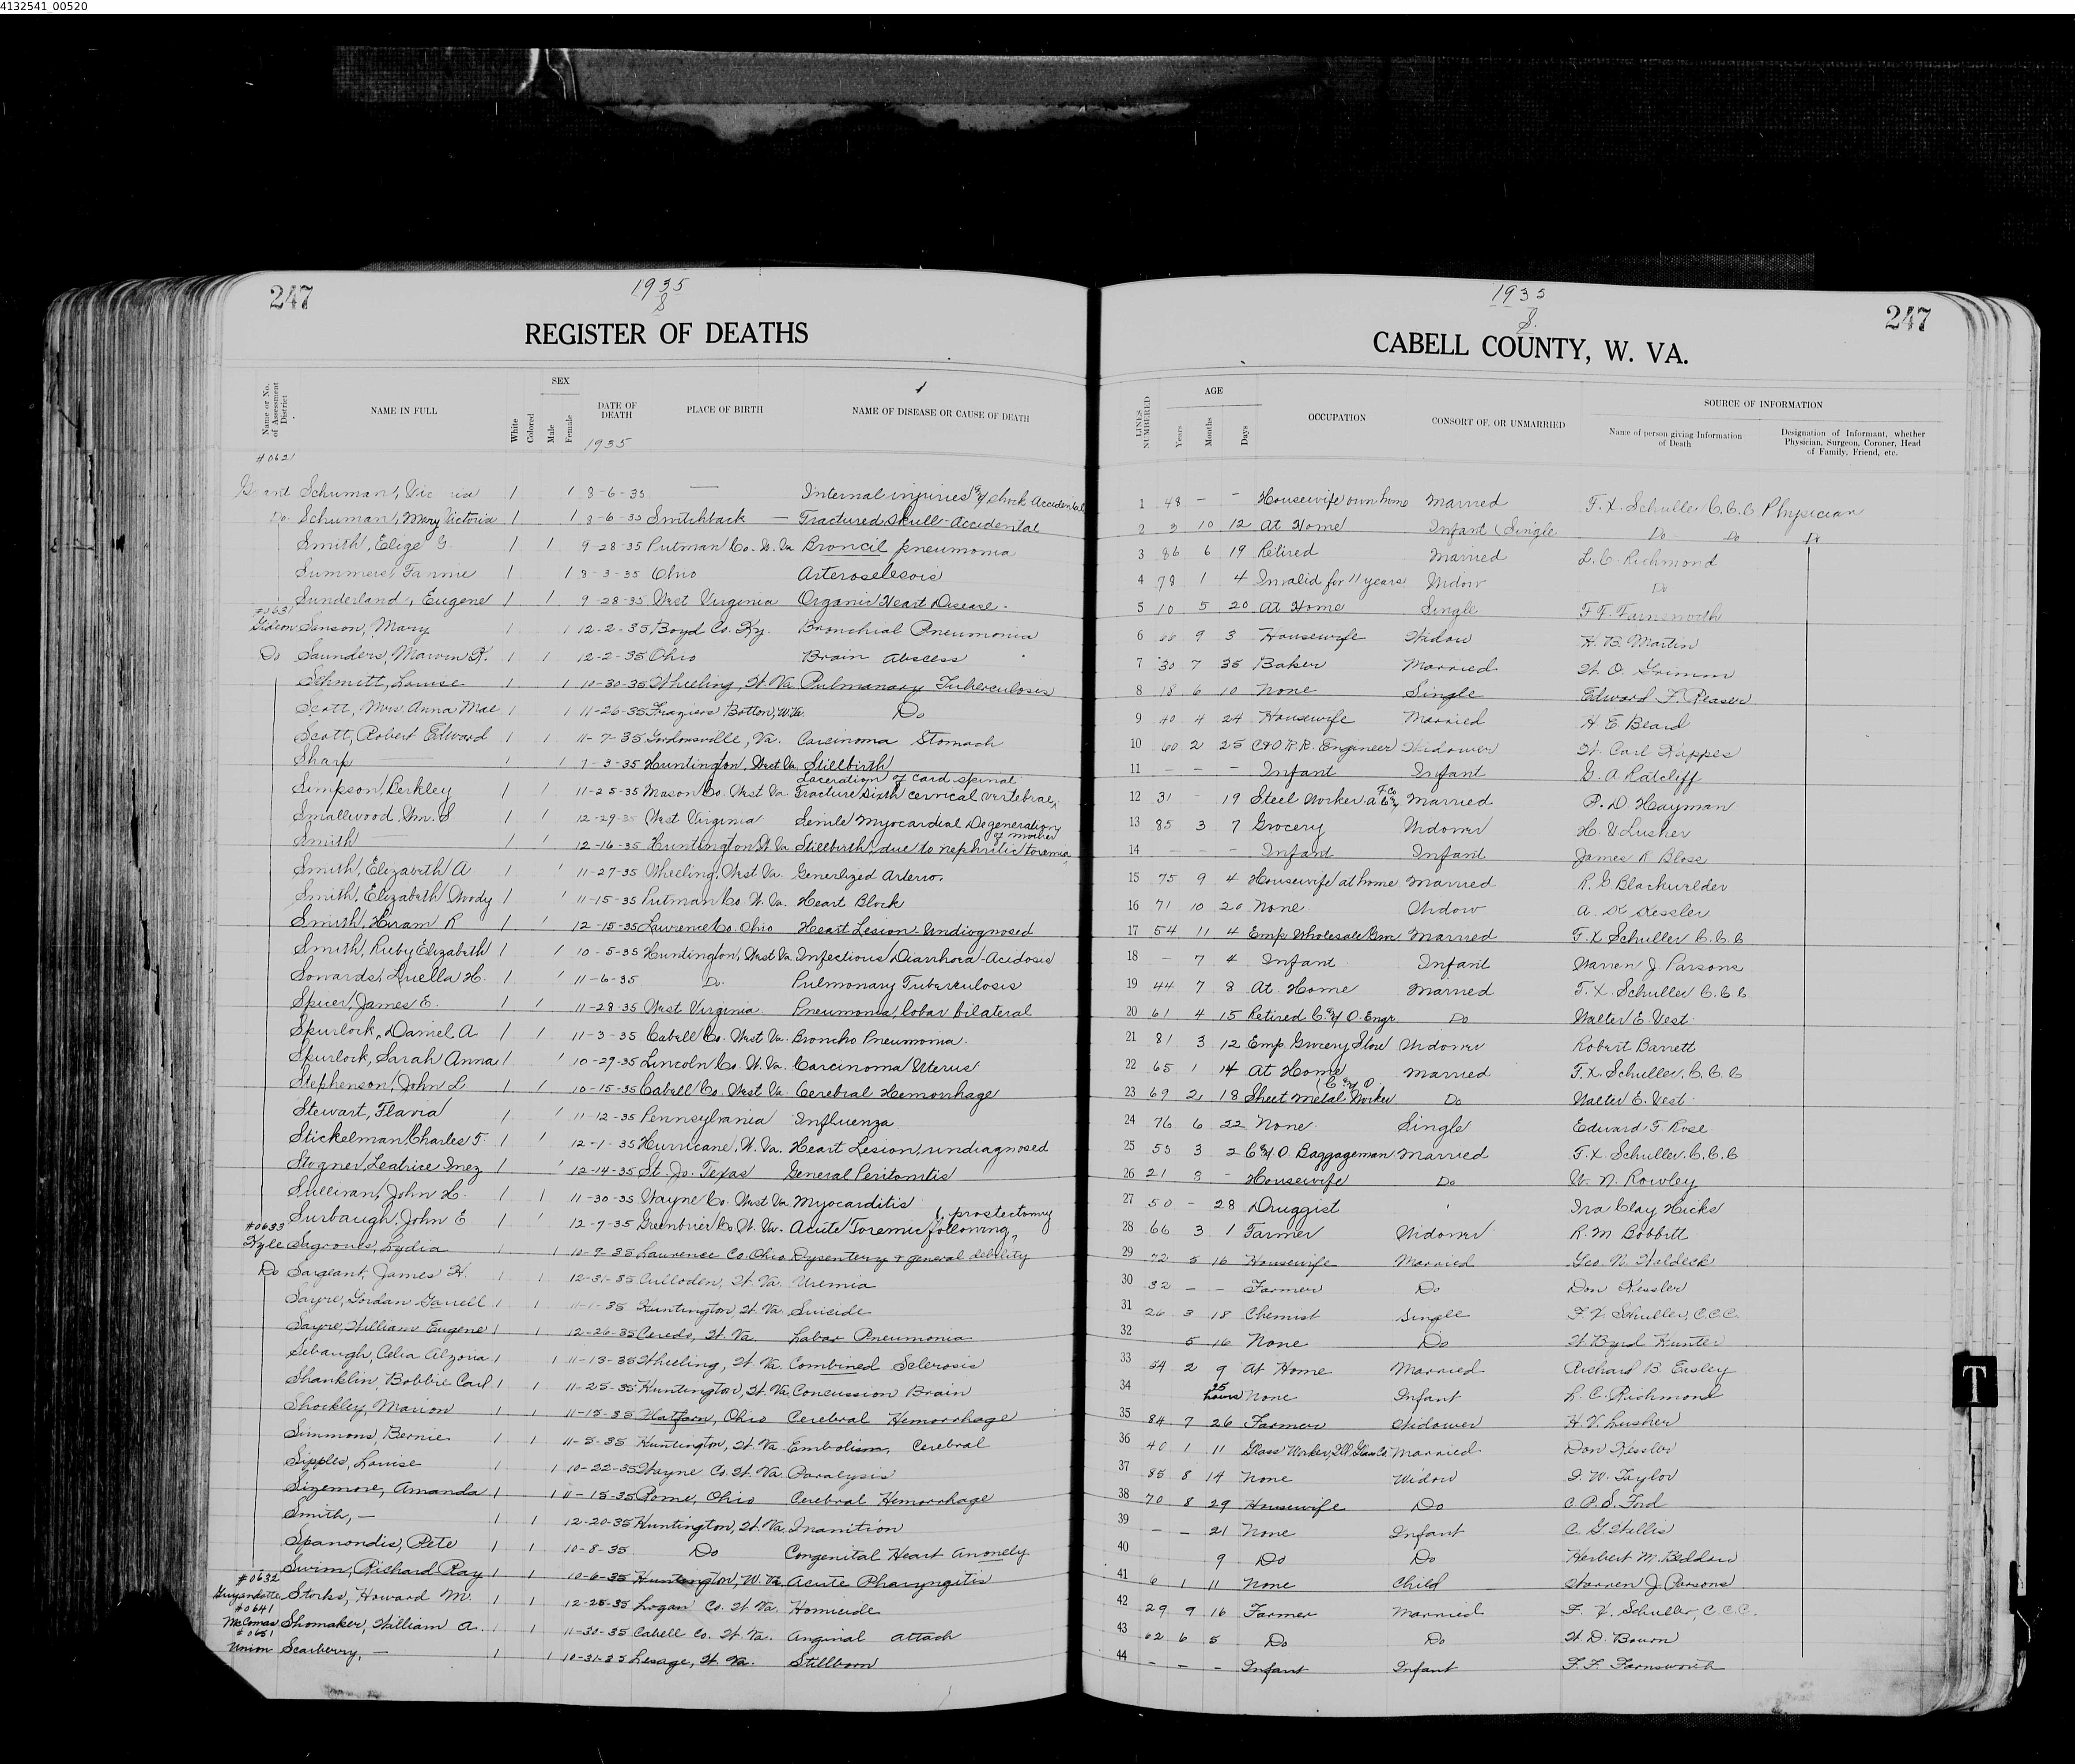 4132541_00520
247
1935
S
REGISTER OF DEATHS
1935
S.
247
CABELL COUNTY, W. VA.
Name or No. of Assessment District
NAME IN FULL
White
Colored
SEX
Male
Female
DATE OF DEATH
1935
PLACE OF BIRTH
NAME OF DISEASE OR CAUSE OF DEATH
LINES NUMBERED
AGE
Years
Months
Days
OCCUPATION
CONSORT OF, OR UNMARRIED
SOURCE OF INFORMATION
Name of person giving Information of Death
Designation of Informant, whether Physician, Surgeon, Coroner, Head of Family, Friend, etc.
#0621
Grant Schuman, 1 1 8-6-35 — Internal injuries & shock Accidental 1 48 - - Housewife own home Married F.X. Schuller C.C.C Physician
Do Schuman, Mary Victoria 1 1 8-6-35 Switchback — Fractured Skull-Accidental 2 9 10 12 At Home Infant (Single Do Do Do
Smith, Elige G. 1 1 9-28-35 Putman Co. W. Va Broncil pneumonia 3 86 6 19 Retired Married L.C. Richmond
Summers, Fannie 1 1 8-3-35 Ohio Arteroselesois 4 78 1 4 Invalid for 11 years Widow Do
Sunderland, Eugene 1 1 9-28-35 West Virginia Organic Heart Disease. 5 10 5 20 At Home Single F.F. Farnsworth
#0631
Gideon Sanson, Mary 1 1 12-2-35 Boyd Co. Ky. Bronchial Pneumonia 6 9 3 Housewife Widow H.B. Martin
Do Saunders, Marvin K. 1 1 12-2-35 Ohio Brain Abscess 7 30 7 35 Baker Married W. O. Grimm
Schmitt, Louise 1 1 10-30-35 Wheeling, W. Va. Pulmanary Tuberculosis 8 18 6 10 None Single Edward F. Reaser
Scott, Mrs. Anna Mae 1 1 11-26-35 Fraziers Botton, W.Va. Do 9 40 4 24 Housewife Married H. E. Beard
Scott, Robert Edward 1 1 11-7-35 Gordonsville, Va. Carcinoma Stomach 10 60 2 25 C&O R.R. Engineer Widower W. Carl Kappes
Sharp — 1 1 7-3-35 Huntington, West Va. Stillbirth 11 - - - Infant Infant G. A. Ratcliff
Laceration of Cord spinal
Simpson, Berkley 1 1 11-25-35 Mason Co. West Va. Fracture sixth cervical vertebrae, 12 31 - 19 Steel Worker Married P. D. Hayman
Smallwood, Wm. S 1 1 12-29-35 West Virginia Senile Myocardial Degeneration 13 85 3 7 Grocery Widower H. V Lusher
of mother
Smith 1 1 12-16-35 Huntington W Va. Stillbirth, due to nephritic toxemia 14 - - - Infant Infant James R Bloss
Smith, Elizabeth A 1 1 11-27-35 Wheeling, West Va. Generlized Arterio. 15 75 9 4 Housewife at home Married R. G Blackwelder
Smith, Elizabeth Mody 1 1 11-15-35 Putman Co. W. Va. Heart Block 16 71 10 20 None Widow A. K Kessler
Smith, Hiram R 1 1 12-15-35 Lawrence Co. Ohio Heart Lesion-Undiognosed 17 54 11 4 Emp. Wholesale Groc Married F.X. Schuller C.C.C
Smith, Ruby Elizabeth 1 1 10-5-35 Huntington, West Va. Infectious Diarrhora-Acidosis 18 - 7 4 Infant Infant Warren J. Parsons
Sowards, Luella H. 1 1 11-6-35 Do. Pulmonary Tuberculosis 19 44 7 8 At Home Married F.X. Schuller C.C.C
Spicer, James E. 1 1 11-28-35 West Virginia Pneumonia, lobar bilateral 20 61 4 15 Retired C. & O. Engr. Do Walter E. Vest
Spurlock, Daniel A 1 1 11-3-35 Cabell Co. West Va. Broncho Pneumonia. 21 81 3 12 Emp. Grocery Store Widower Robert Barrett
Spurlock, Sarah Anna 1 1 10-29-35 Lincoln Co. W. Va. Carcinoma Uterus 22 65 1 14 At Home Married F.X. Schuller, C.C.C
(C & O.
Stephenson, John L 1 1 10-15-35 Cabell Co. West Va. Cerebral Hemorrhage 23 69 2 18 Sheet Metal Worker Do Walter E. Vest
Stewart, Flavia 1 1 11-12-35 Pennsylvania Influenza 24 76 6 22 None Single Edward F. Rose
Stickelman, Charles F. 1 1 12-1-35 Hurricane, W. Va. Heart Lesion, undiagnosed 25 53 3 2 C & O. Baggageman Married F.X. Schuller. C.C.C
Stogner, Leatrice Inez 1 1 12-14-35 St. Jo. Texas General Peritonitis 26 21 8 - Housewife Do W. N. Rowley
Sullivan, John H. 1 1 11-30-35 Wayne Co. West Va. Myocarditis 27 50 - 28 Druggist ' Ira Clay Hicks
(prostectomy
Surbaugh, John E 1 1 12-7-35 Greenbrier Co W. Va. Acute Toremic following, 28 66 3 1 Farmer Widower R. M Bobbitt
#0633
Kyle Segroues, Lydia 1 1 10-9-35 Laurence Co. Ohio Dysentery & general debility 29 72 5 16 Housewife Married Geo. N. Waldeck
Do Sargeant, James H. 1 1 12-31-35 Culloden, W. Va. Uremia 30 32 - - Farmer Do Don Kessler
Sayre, Gordan Garrell 1 1 11-1-35 Huntington, W. Va. Suicide 31 26 3 18 Chemist Single F. X. Schuller, C.C.C.
Sayre, William Eugene 1 1 12-26-35 Ceredo, W. Va. Labar Pneumonia 32 5 16 None Do W. Byrd Hunter
Sebaugh, Celia Alzoria 1 1 11-13-35 Wheeling, W. Va. Combined Sclerosis 33 54 2 9 At Home Married Richard B. Easley
Shanklin, Bobbie Carl 1 1 11-25-35 Huntington, W. Va. Concussion Brain 34 25 hours None Infant L. C. Richmond
Shockley, Marion 1 1 11-15-35 Ohio Cerebral Hemorrhage 35 84 7 26 Farmer Widower H. V. Lusher
Simmons, Bernie 1 1 11-5-35 Huntington, W. Va. Embolism, Cerebral 36 40 1 11 Glass Worker, Ill. Glass Co. Married Don Kessler
Sipples, Louise 1 1 10-22-35 Wayne Co. W. Va. Paralysis 37 85 8 14 None Widow I. W. Taylor
Sizemore, Amanda 1 1 11-15-35 Rome, Ohio Cerebral Hemorrhage 38 70 8 29 Housewife Do C. P. S. Ford
Smith, — 1 1 12-20-35 Huntington, W. Va. Inanition 39 - - 21 None Infant C. G. Willis
Spanondis, Pete 1 1 10-8-35 Do Congenital Heart Anomely 40 9 Do Do Herbert M. Beddow
Swim, Richard Ray 1 1 10-6-35 Huntington, W. Va. Acute Pharyngitis 41 6 1 11 None Child Warren J. Parsons
#0632
Guyandotte Storks, Howard M. 1 1 12-25-35 Logan Co. W. Va. Homicide 42 29 9 16 Farmer Married F. X. Schuller, C.C.C.
#0641
McComas Shomaker, William A. 1 1 11-30-35 Cabell Co. W. Va. Anginal attach 43 62 6 5 Do Do W. D. Bourn
#0651
Union Scarberry, — 1 1 10-31-35 Lesage, W. Va. Stillborn 44 - - - Infant Infant F. F. Farnsworth
T